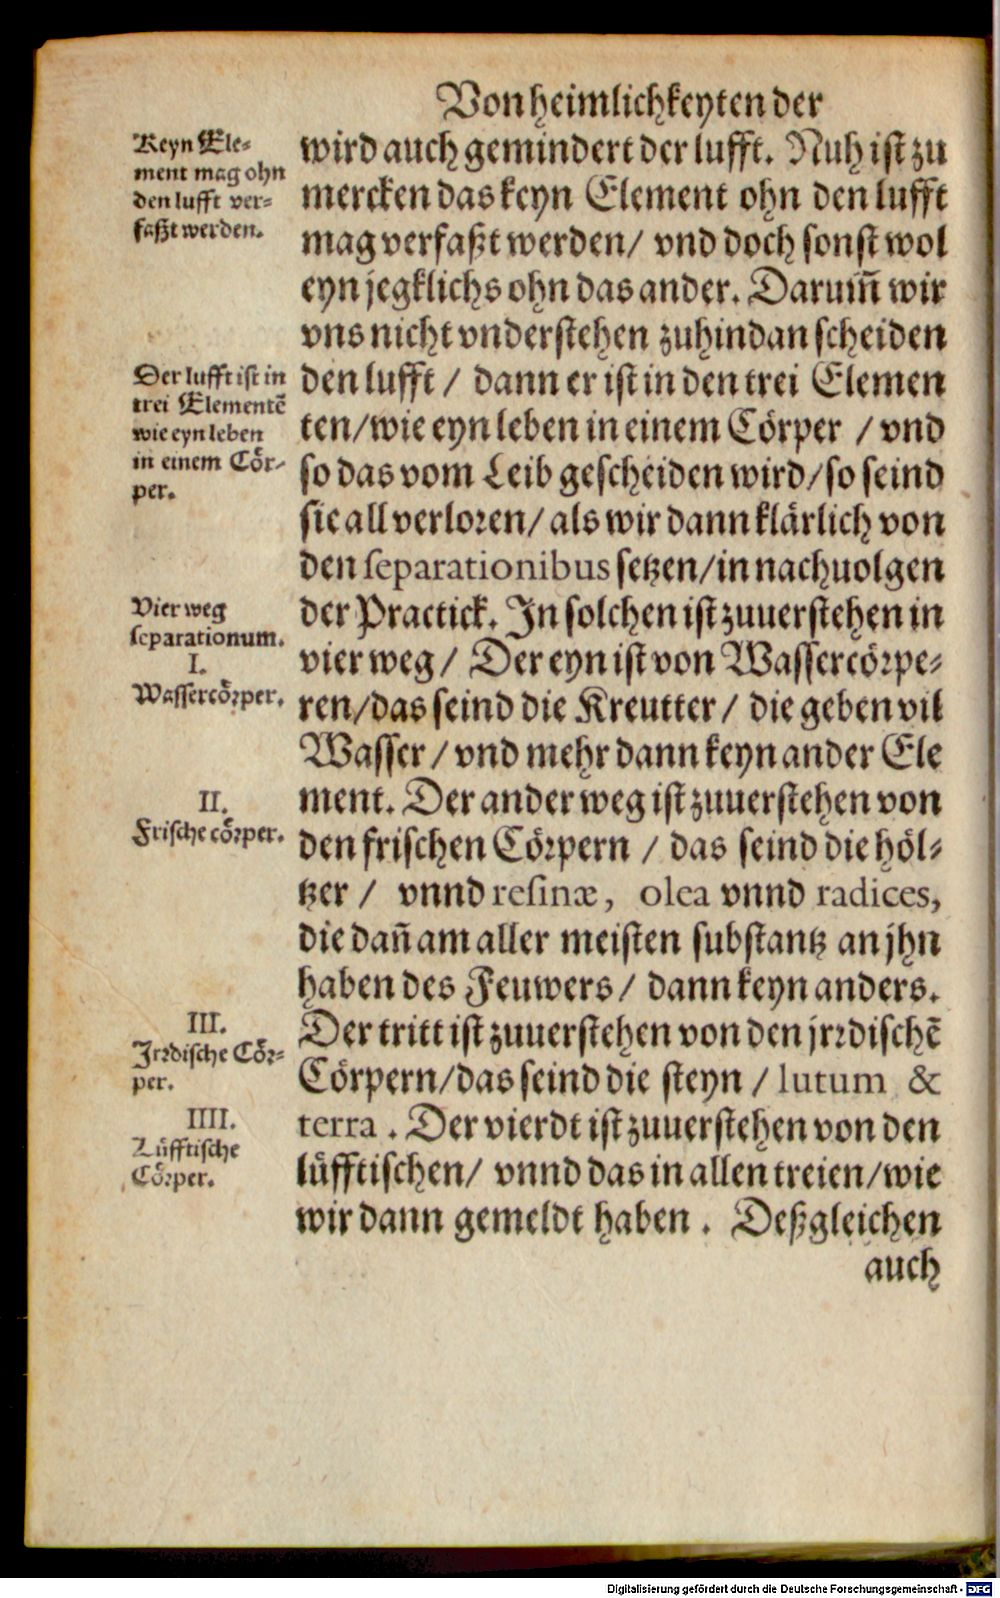 Von heimlichkeyten der
Keyn Ele-
ment mag ohn
den lufft ver-
faßt werden.
wird auch gemindert der lufft. Nuh ist zu
mercken das keyn Element ohn den lufft
mag verfaßt werden/ vnd doch sonst wol
eyn jegklichs ohn das ander. Darum̃ wir
vns nicht vnderstehen zuhindan scheiden
Der lufft ist in
trei Elementẽ
wie eyn leben
in einem Coͤr-
per.
den lufft / dann er ist in den trei Elemen
ten/wie eyn leben in einem Coͤrper / vnd
so das vom Leib gescheiden wird/so seind
sie all verloren/ als wir dann klaͤrlich von
den separationibus setzen/in nachuolgen
Vier weg
separationum.
I.
Wassercoͤrper.
der Practick. In solchen ist zuuerstehen in
vier weg / Der eyn ist von Wassercoͤrpe-
ren/das seind die Kreutter / die geben vil
Wasser / vnd mehr dann keyn ander Ele
II.
Frische coͤrper.
ment. Der ander weg ist zuuerstehen von
den frischen Coͤrpern / das seind die hoͤl-
tzer / vnnd resinæ, olea vnnd radices,
die dañ am aller meisten substantz an jhn
haben des Feuwers / dann keyn anders.
III.
Jrrdische Coͤr-
per.
Der tritt ist zuuerstehen von den jrrdischẽ
Coͤrpern/das seind die steyn / lutum &
IIII.
Luͤfftische
Coͤrper.
terra . Der vierdt ist zuuerstehen von den
luͤfftischen/ vnnd das in allen treien/wie
wir dann gemeldt haben . Deßgleichen
auch
Digitalisierung gefördert durch die Deutsche Forschungsgemeinschaft - DFG